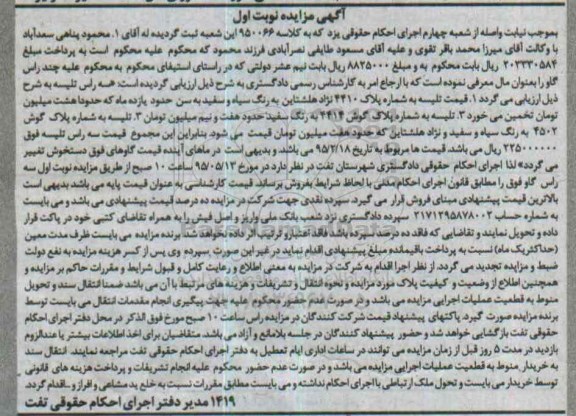 آگهی مزایده نوبت اول
بموجب نیابت واصله از شعبه چهارم اجرای احکام حقوقی یزد که به کلاسه ۹۵۰۰۶۶ این شعبه ثبت گردیده له آقای ۱. محمود پناهی سعدآباد
با وکالت آقای میرزا محمد باقر تقوی و علیه آقای مسعود طایفی نصرآبادی فرزند محمود که محکوم علیه محکوم است به پرداخت مبلغ
۲۰۲۳۳۰۵۸۴ ریال بابت محکوم به و مبلغ ۸۸۲۵۰۰۰ ریال بابت نیم عشر دولتی که در راستای استیفای محکوم به محکوم علیه چند راس
گاو را بعنوان مال معرفی نموده است که با ارجاع امر به کارشناس رسمی دادگستری به شرح ذیل ارزیابی گردیده است: سه راس تلیسه به شرح
ذیل ارزیابی می گردد ۱. قیمت تلیسه به شماره پلاک ۴۴۱۰ نژاد هلشتاین به رنگ سیاه و سفید به سن حدود یازده ماه که حدودا هشت میلیون
تومان تخمین می خورد ۲. تلیسه به شماره پلاک گوش ۴۴۱۴ به رنگ سفید حدود هفت و نیم میلیون تومان ۳. تلیسه به شماره پلاک گوش
۴۵۰۲ به رنگ سیاه و سفید و نژاد هلشتاین که حدود هفت میلیون تومان قیمت می شود. بنابراین این مجموع قیمت سه راس تلیسه فوق
۲۲۵۰۰۰۰۰۰ ریال می باشد. قیمت ها مربوط به تاریخ ۹۵/۲/۱۸ می باشد و بدیهی است در ماههای آینده قیمت گاوهای فوق دستخوش تغییر
می گردد» لذا اجرای احکام حقوقی دادگستری شهرستان تفت در نظر دارد در مورخ ۹۵/۰۵/۱۳ ساعت ۱۰ صبح از طریق مزایده نوبت اول سه
راس گاو فوق را مطابق قانون اجرای احکام مدنی با لحاظ شرایط بفروش برساند. قیمت کارشناسی به عنوان قیمت پایه می باشد بدیهی است
بالاترین قیمت پیشنهادی مبنای فروش قرار می گیرد. سپرده نقدی جهت شرکت در مزایده ده درصد قیمت پیشنهادی می باشد و می بایست
به شماره حساب ۲۱۷۱۲۹۵۸۷۸۰۰۲ سپرده دادگستری نزد شعب بانک ملی واریز و اصل فیش را به همراه تقاضای کتبی خود در پاکت قرار
داده و تحویل نمایند و تقاضایی که فاقد ده درصد سپرده باشد فاقد اعتبار و ترتیب اثر داده نخواهد شد. برنده مزایده می بایست ظرف مدت معین
(حداکثر یک ماه) نسبت به پرداخت باقیمانده مبلغ پیشنهادی اقدام نماید در غیر این صورت سپرده وی پس از کسر هزینه مزایده به نفع دولت
ضبط و مزایده تجدید می گردد. از نظر اجرا اقدام به شرکت در مزایده به معنی اطلاع و رعایت کامل و قبول شرایط و مقررات حاکم بر مزایده و
همچنین اطلاع از وضعیت و کیفیت پلاک مورد مزایده و نحوه انتقال و تشریفات و هزینه های مرتبط با آن می باشد ضمنا انتقال سند و تحویل
منوط به قطعیت عملیات اجرایی مزایده می باشد و در صورت عدم حضور محکوم علیه جهت پیگیری انجام مقدمات انتقال می بایست توسط
برنده مزایده صورت گیرد. پاکتهای پیشنهاد قیمت شرکت کنندگان در مزایده راس ساعت ۱۰ صبح مورخ فوق الذکر در محل دفتر اجرای احکام
حقوقی تفت بازگشایی خواهد شد و حضور پیشنهاد کنندگان در جلسه بلامانع و آزاد می باشد. متقاضیان برای اخذ اطلاعات بیشتر یا عندالزوم
بازدید در مدت ۵ روز قبل از زمان مزایده می توانند در ساعات اداری ایام تعطیل به دفتر اجرای احکام حقوقی تفت مراجعه نمایند. انتقال سند
به خریدار منوط به قطعیت عملیات اجرایی مزایده می باشد و در صورت عدم حضور محکوم علیه انجام تشریفات و پرداخت هزینه های قانونی
توسط خریدار می بایست و تحول ملک ارتباطی با اجرای احکام نداشته و می بایست مطابق مقررات نسبت به خلع ید مشاعی و افراز و... اقدام گردد.
۱۴۱۹ مدیر دفتر اجرای احکام حقوقی تفت